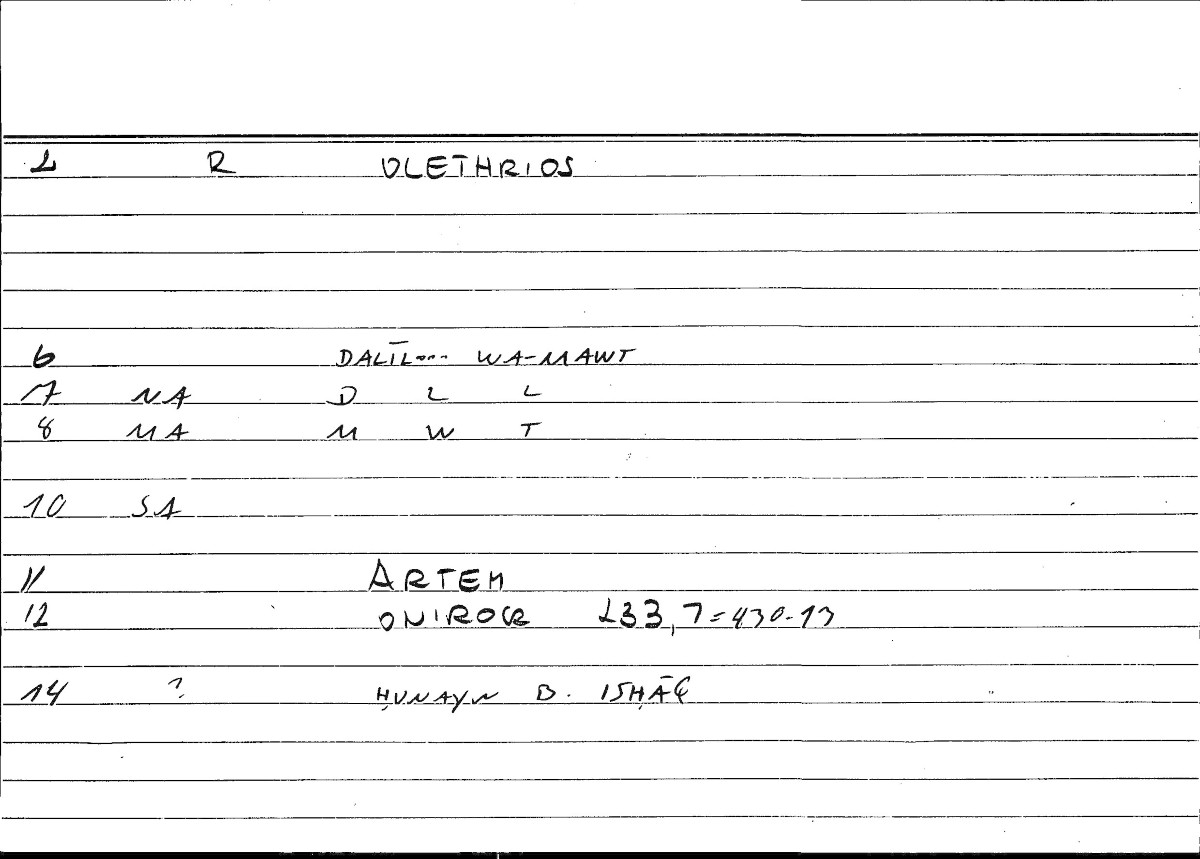 1 R OLETHRIOS
6 DALĪL... WA-MAWT
7 NA D L L
8 MA M W T
10 SA
11 ARTEM
12 ONIROCR 233,7=430-13
14 ? ḤUNAYN B. ISḤĀQ